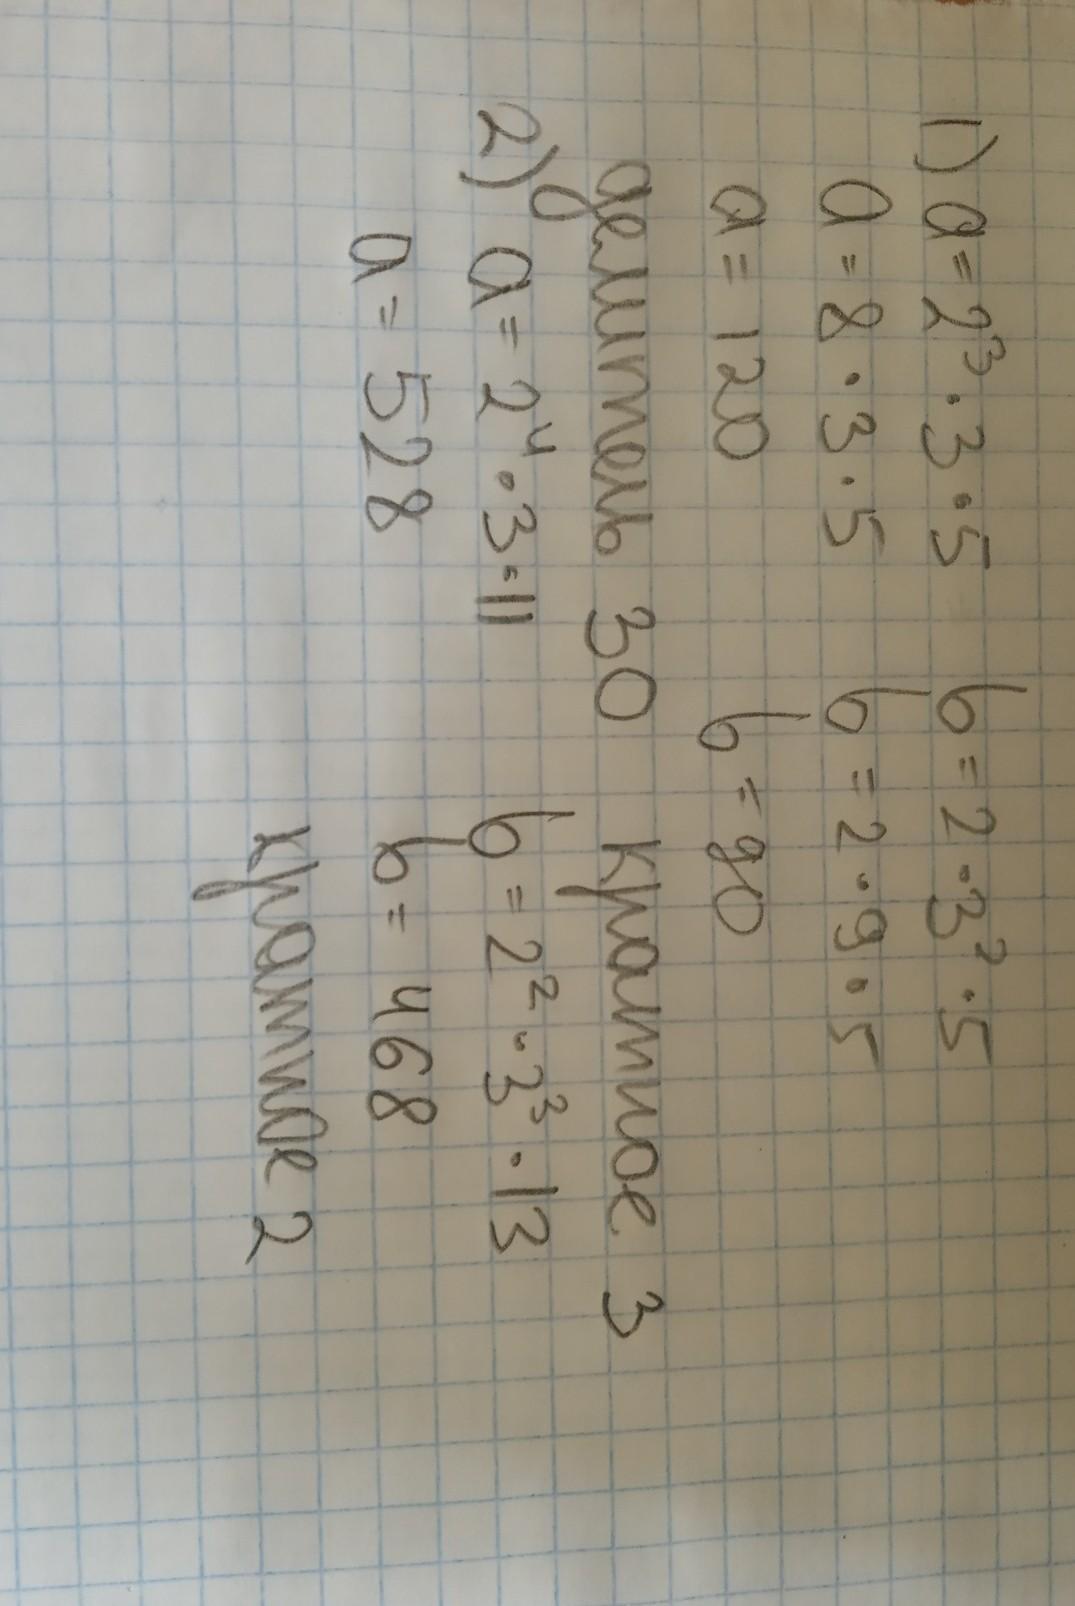 1) a = 2³ · 3 · 5 b = 2 · 3² · 5
a = 8 · 3 · 5 b = 2 · 9 · 5
a = 120 b = 90
делитель 30 кратное 3
2) a = 2⁴ · 3 · 11 b = 2² · 3³ · 13
a = 528 b = 468
кратное 2